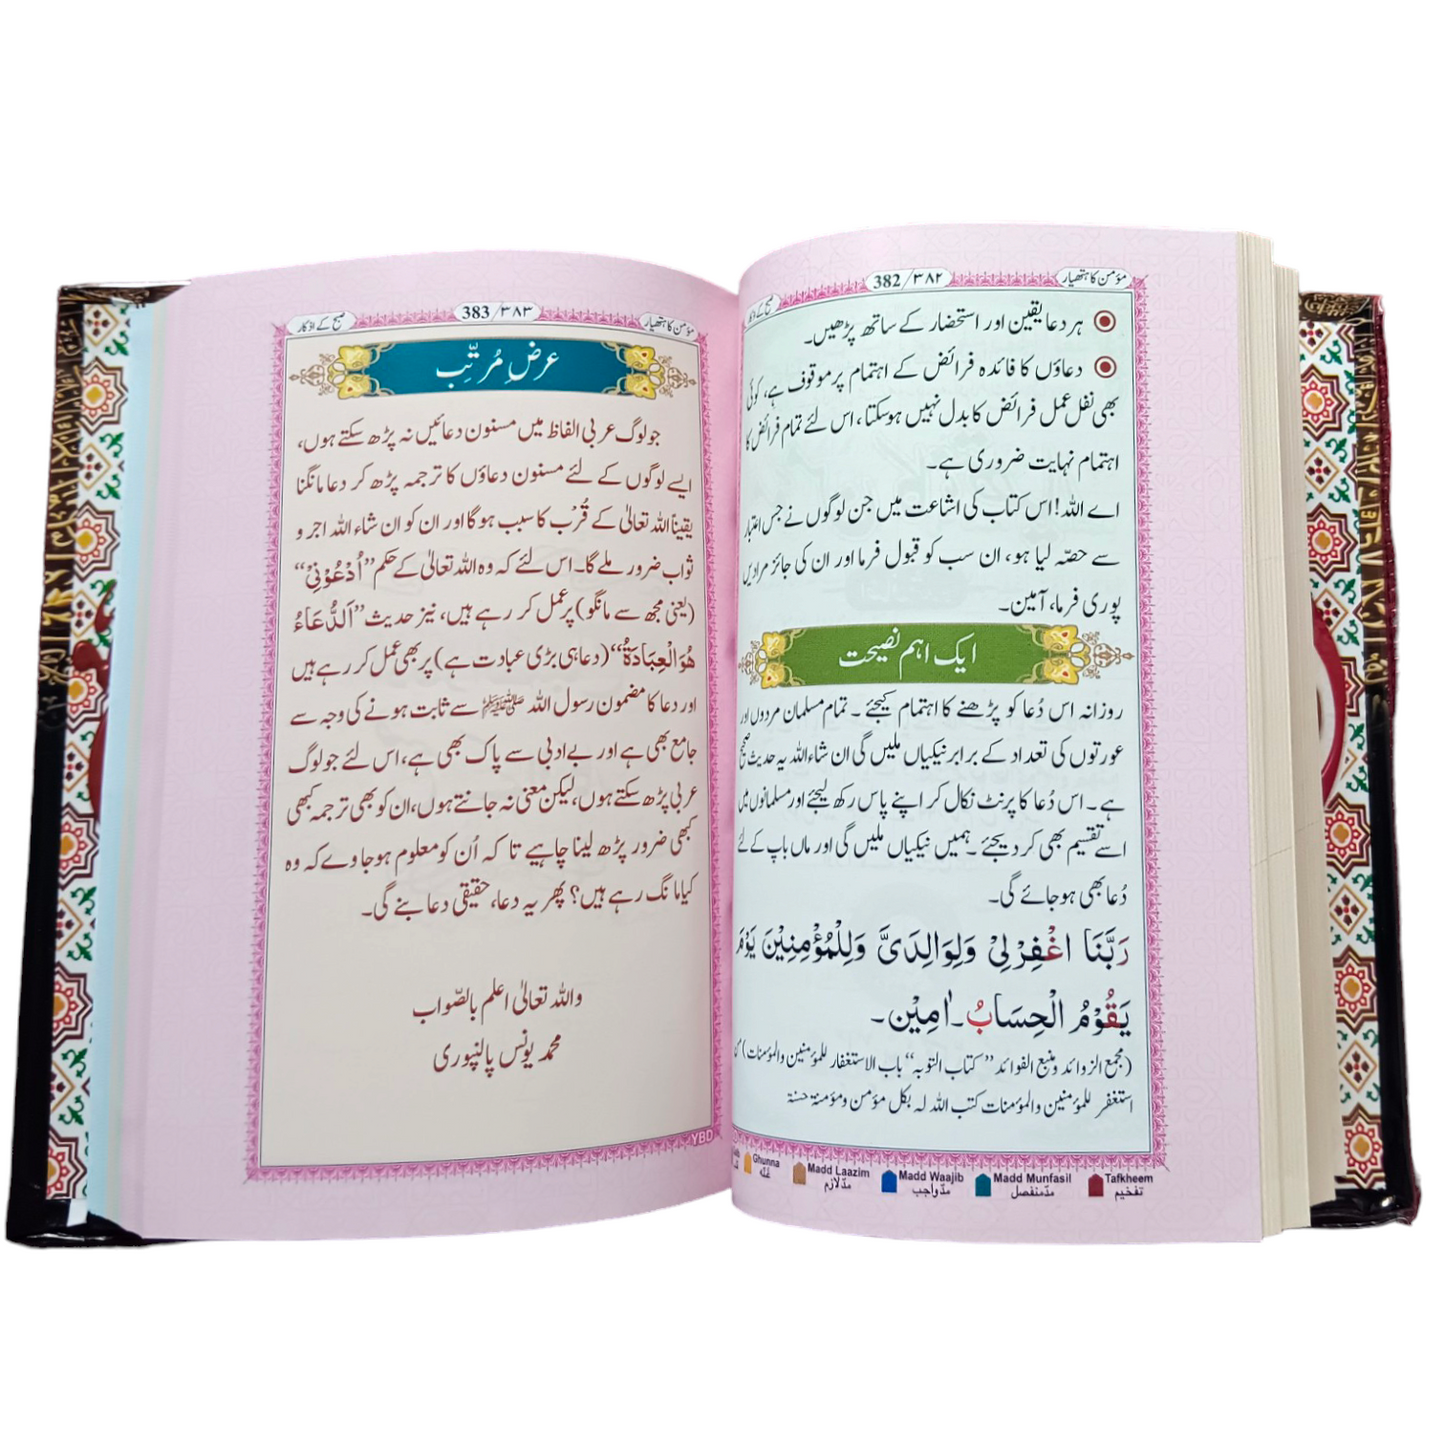 مؤمن کا ہتھیار
382/۳۸۲
صبح کے اذکار
ہر دعا یقین اور استحضار کے ساتھ پڑھیں۔
دعاؤں کا فائدہ فرائض کے اہتمام پر موقوف ہے، کوئی
بھی نفل عمل فرائض کا بدل نہیں ہو سکتا، اس لئے تمام فرائض کا
اہتمام نہایت ضروری ہے۔
اے اللہ! اس کتاب کی اشاعت میں جن لوگوں نے جس اعتبار
سے حصّہ لیا ہو، ان سب کو قبول فرما اور ان کی جائز مرادیں
پوری فرما، آمین۔
ایک اہم نصیحت
روزانہ اس دُعا کو پڑھنے کا اہتمام کیجئے۔ تمام مسلمان مردوں اور
عورتوں کی تعداد کے برابر نیکیاں ملیں گی ان شاء اللہ یہ حدیث صحیح
ہے۔ اس دُعا کا پرنٹ نکال کر اپنے پاس رکھ لیجئے اور مسلمانوں میں
اسے تقسیم بھی کر دیجئے۔ ہمیں نیکیاں ملیں گی اور ماں باپ کے لئے
دُعا بھی ہو جائے گی۔
رَبَّنَا اغْفِرْلِیْ وَلِوَالِدَیَّ وَلِلْمُؤْمِنِیْنَ یَوْمَ
یَقُوْمُ الْحِسَابُ۔ اٰمِیْن۔
(مجمع الزوائد ومنبع الفوائد ”کتاب التوبہ“ باب الاستغفار للمؤمنین والمؤمنات)
استغفر للمؤمنین والمؤمنات کتب اللہ لہ بکل مؤمن ومؤمنۃ حسنۃ
Ghunna
غنّہ
Madd Laazim
مدّلازم
Madd Waajib
مدّواجب
Madd Munfasil
مدّمنفصل
Tafkheem
تفخیم
مؤمن کا ہتھیار
383/۳۸۳
صبح کے اذکار
عرضِ مُرتّب
جو لوگ عربی الفاظ میں مسنون دعائیں نہ پڑھ سکتے ہوں،
ایسے لوگوں کے لئے مسنون دعاؤں کا ترجمہ پڑھ کر دعا مانگنا
یقیناً اللہ تعالیٰ کے قُرب کا سبب ہوگا اور ان کو ان شاء اللہ اجر و
ثواب ضرور ملے گا۔ اس لئے کہ وہ اللہ تعالیٰ کے حکم ”اُدْعُوْنِیْ“
(یعنی مجھ سے مانگو) پر عمل کر رہے ہیں، نیز حدیث ”اَلدُّعَاءُ
ھُوَالْعِبَادَۃُ“ (دعا ہی بڑی عبادت ہے) پر بھی عمل کر رہے ہیں
اور دعا کا مضمون رسول اللہ ﷺ سے ثابت ہونے کی وجہ سے
جامع بھی ہے اور بے ادبی سے پاک بھی ہے، اس لئے جو لوگ
عربی پڑھ سکتے ہوں، لیکن معنی نہ جانتے ہوں، ان کو بھی ترجمہ کبھی
کبھی ضرور پڑھ لینا چاہیے تا کہ اُن کو معلوم ہو جاوے کہ وہ
کیا مانگ رہے ہیں؟ پھر یہ دعا، حقیقی دعا بنے گی۔
واللہ تعالیٰ اعلم بالصّواب
محمد یونس پالنپوری
YBD